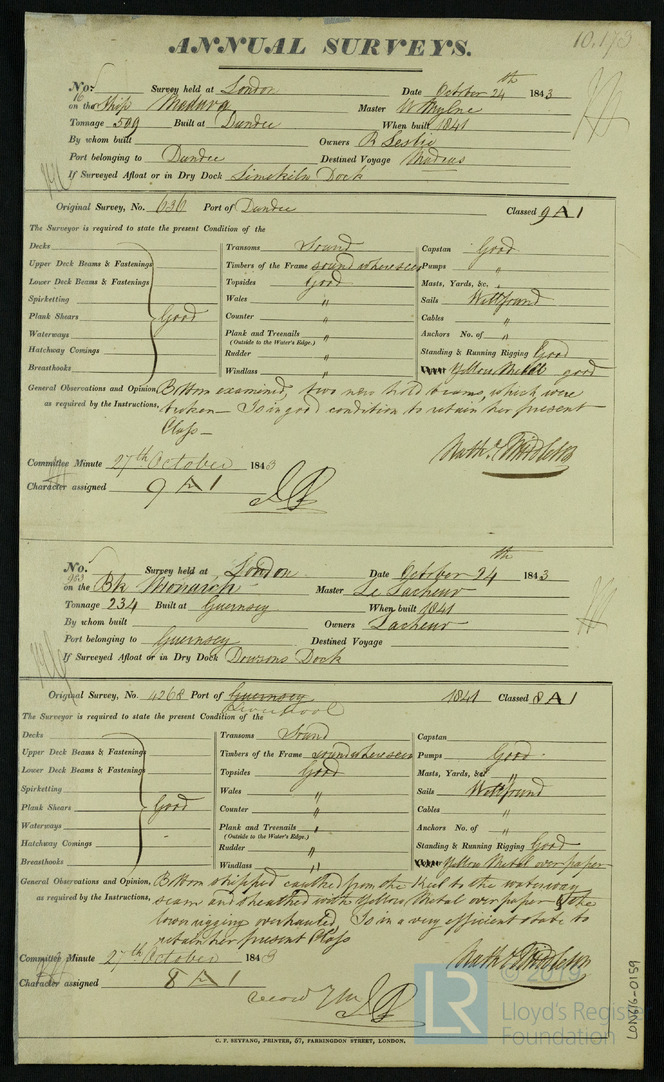 10,173
ANNUAL SURVEYS.
No. Survey held at London Date October 24th 1843
16
on the Ship Madura Master W Mylne
Tonnage 509 Built at Dundee When built 1841
By whom built Owners R Leslie
Port belonging to Dundee Destined Voyage Madras
If Surveyed Afloat or in Dry Dock Limekiln Dock
Original Survey, No. 636 Port of Dundee Classed 9 A 1
The Surveyor is required to state the present Condition of the
Decks Transoms Sound Capstan Good
Upper Deck Beams & Fastenings Timbers of the Frame sound where seen Pumps "
Lower Deck Beams & Fastenings Topsides Good Masts, Yards, &c. "
Spirketting Wales " Sails Well found
Plank Shears Good Counter " Cables "
Waterways Plank and Treenails " Anchors No. of "
(Outside to the Water's Edge.)
Hatchway Comings Rudder " Standing & Running Rigging Good
Breasthooks Windlass " Yellow Metal good
General Observations and Opinion, Bottom examined, two new hold beams, which were
as required by the Instructions, broken — Is in good condition to retain her present
Class —
Committee Minute 27th October 1843
Character assigned 9 A 1
No. Survey held at London Date October 24th 1843
983
on the Bk Monarch Master Le Lacheur
Tonnage 234 Built at Guernsey When built 1841
By whom built Owners Lacheur
Port belonging to Guernsey Destined Voyage
If Surveyed Afloat or in Dry Dock Dowsons Dock
Original Survey, No. 4268 Port of Guernsey 1841 Classed 8 A 1
Liverpool
The Surveyor is required to state the present Condition of the
Decks Transoms Sound Capstan
Upper Deck Beams & Fastenings Timbers of the Frame sound where seen Pumps Good
Lower Deck Beams & Fastenings Topsides Good Masts, Yards, &c. "
Spirketting Wales " Sails Well found
Plank Shears Good Counter " Cables "
Waterways Plank and Treenails " Anchors No. of "
(Outside to the Water's Edge.)
Hatchway Comings Rudder " Standing & Running Rigging Good
Breasthooks Windlass " Yellow Metal over paper
General Observations and Opinion, Bottom stripped caulked from the Keel to the waterway
as required by the Instructions, seam and sheathed with Yellow Metal over paper & the
lower rigging overhauled, Is in a very efficient state to
retain her present Class
Committee Minute 27th October 1843
Character assigned 8 A 1
record YM
© 2019
LR Lloyd's Register
Foundation
LON616-0159
C. F. SEYFANG, PRINTER, 57, FARRINGDON STREET, LONDON.